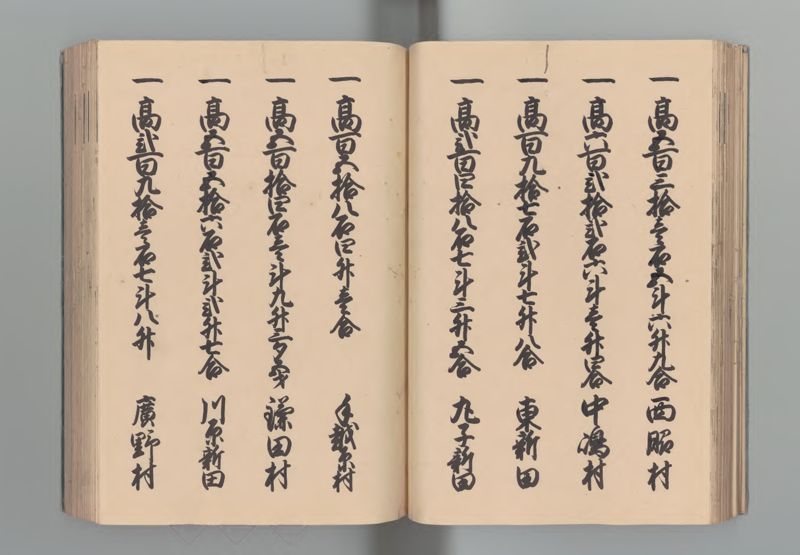 一高五百三拾壱石五斗六升九合 西脇村
一高六百弐拾弐石六斗壱升四合 中嶋村
一高百九拾七石弐斗七升八合 東新田
一高弐百四拾八石七斗三升五合 丸子新田
一高百五拾八石四升壱合 手越原村
一高五百拾四石壱斗九升 鎌田村
一高五百五拾六石弐斗弐升七合 川原新田
一高弐百九拾壱石七斗八升 廣野村